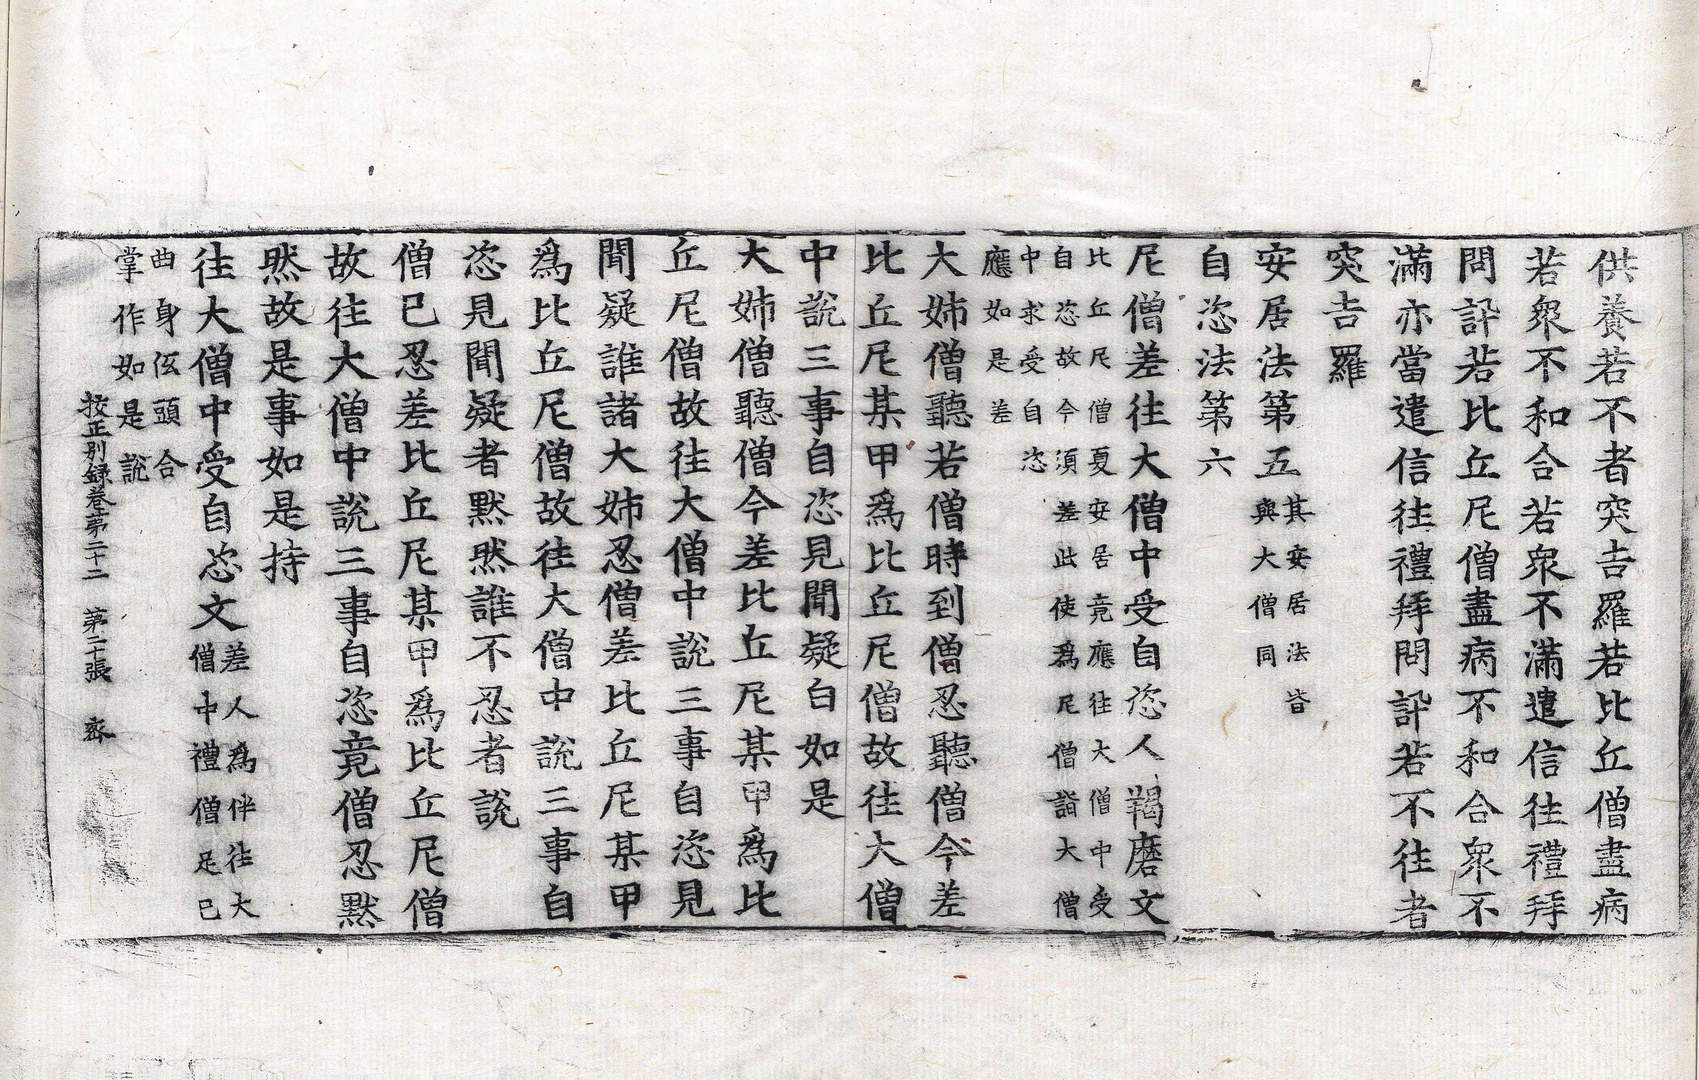 供養若不者突吉羅若比丘僧盡病
若衆不和合若衆不滿遣信往禮拜
問訊若比丘尼僧盡病不和合衆不
滿亦當遣信往禮拜問訊若不往者
突吉羅
安居法第五其安居法皆
與大僧同
自恣法第六
尼僧差往大僧中受自恣人羯磨文
比丘尼僧夏安居竟應往大僧中受
自恣故今須差此使爲尼僧詣大僧
中求受自恣
應如是差
大姊僧聽若僧時到僧忍聽僧今差
比丘尼某甲爲比丘尼僧故往大僧
中說三事自恣見聞疑白如是
大姊僧聽僧今差比丘尼某甲爲比
丘尼僧故往大僧中說三事自恣見
聞疑誰諸大姊忍僧差比丘尼某甲
爲比丘尼僧故往大僧中說三事自
恣見聞疑者黙然誰不忍者說
僧已忍差比丘尼某甲爲比丘尼僧
故往大僧中說三事自恣竟僧忍黙
然故是事如是持
往大僧中受自恣文差人爲伴往大
僧中禮僧足已
曲身伭頭合
掌作如是說
挍正別録卷第二十二　第二十張　亝